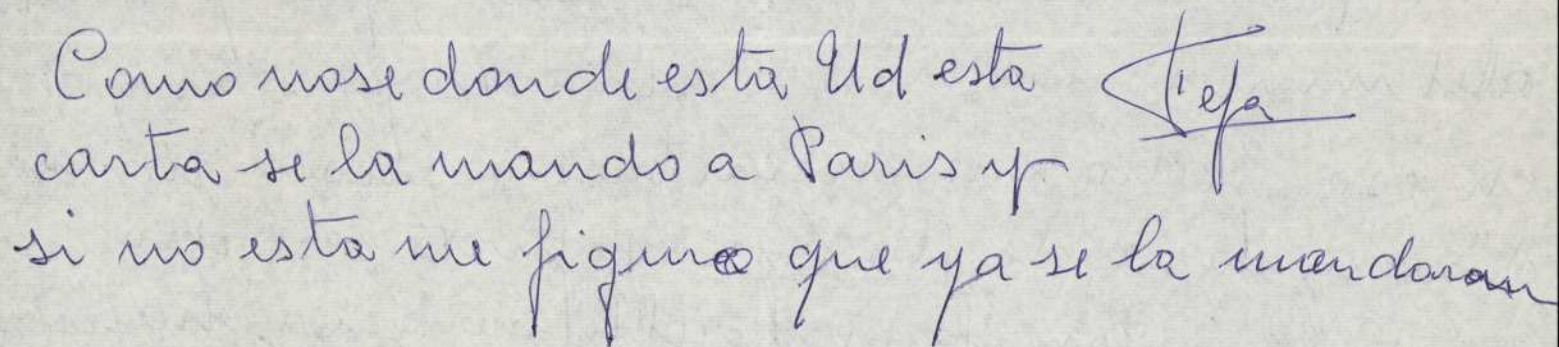 Como nose donde esta Ud esta Pepa
carta se la mando a Paris y
si no esta me figuro que ya se la mandaran